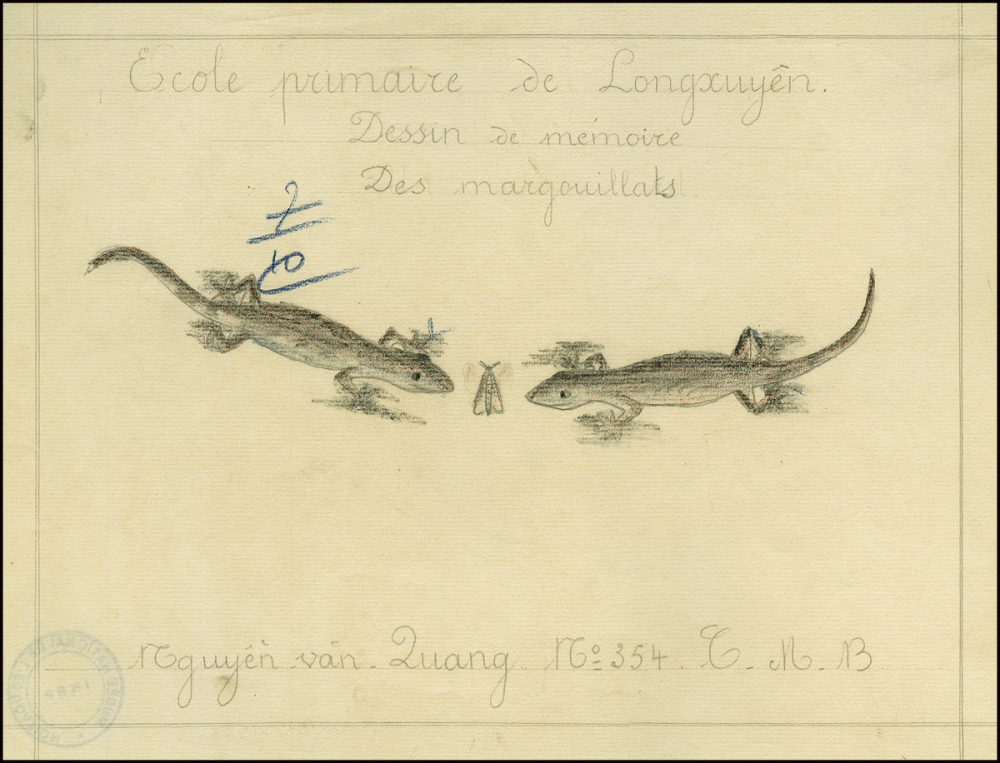 Ecole primaire de Longxuyên.
Dessin de mémoire
Des margouillats
7
10
Nguyên văn Quang N<sup>o</sup> 354. C. M. B